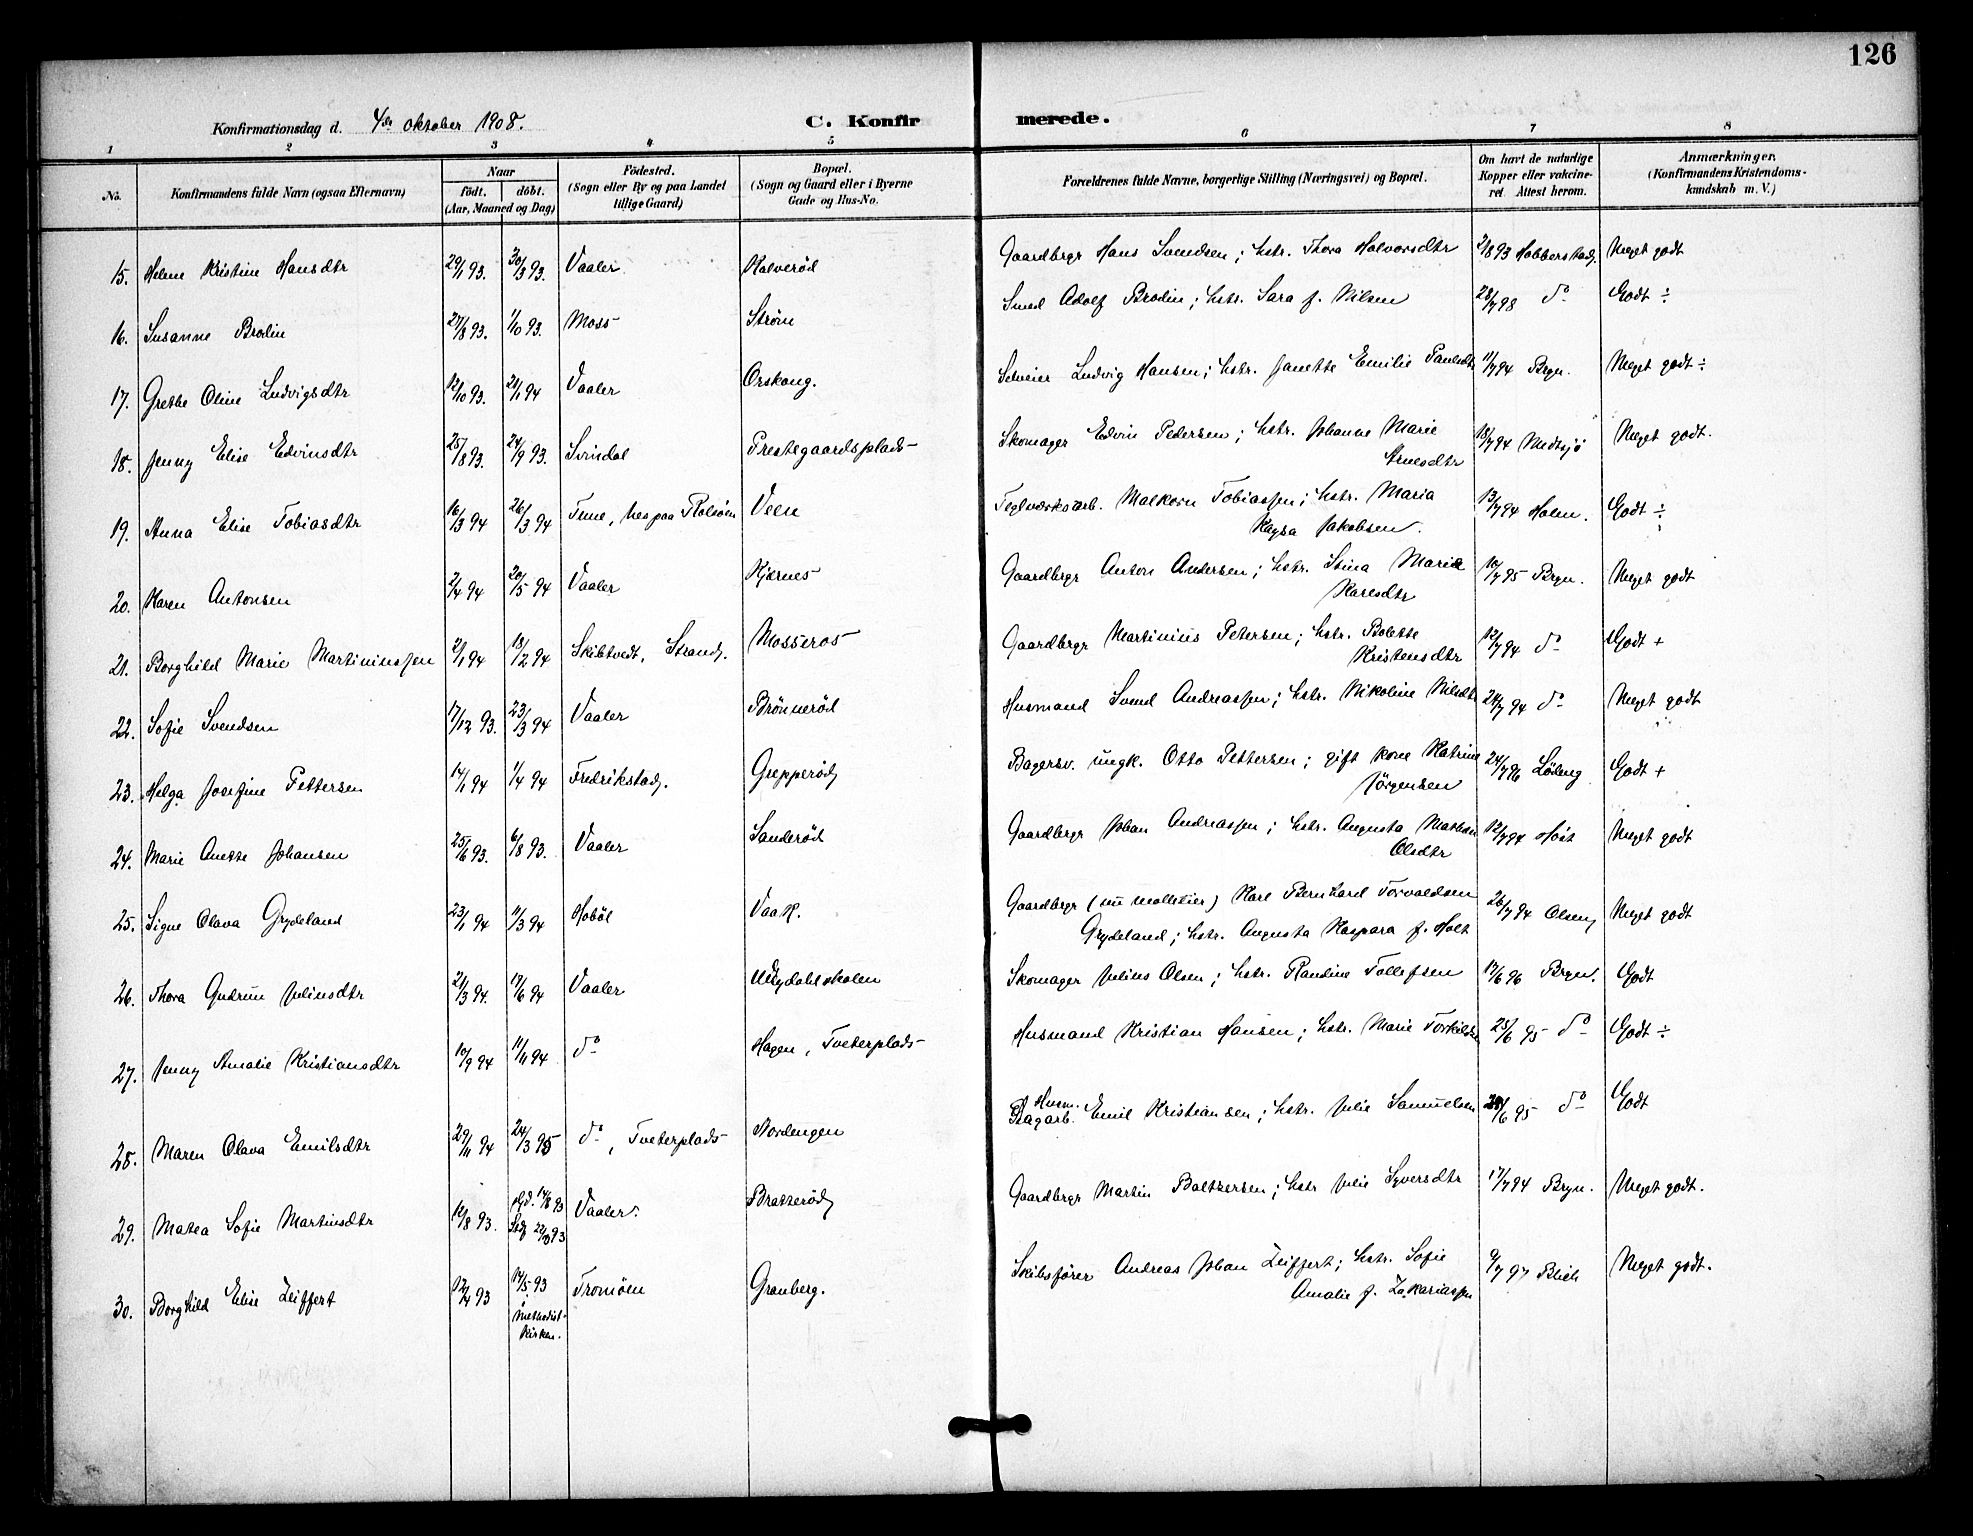 126
Konfirmationsdag d. 4de oktober 1908.
C. Konfirmerede.
1 2 3 4 5 6 7 8
No.
Konfirmandens fulde Navn (ogsaa Efternavn)
Naar
födt. döbt.
(Aar, Maaned og Dag)
Födested.
(Sogn eller By og paa Landet
tillige Gaard)
Bopæl.
(Sogn og Gaard eller i Byerne
Gade og Hus-No.
Forældrenes fulde Navne, borgerlige Stilling (Næringsvei) og Bopæl.
Om havt de naturlige
Kopper eller vakcine-
ret. Attest herom.
Anmærkninger.
(Konfirmandens Kristendoms-
kundskab m. V.)
15. Helene Kristine Hansdtr 29/1 93. 30/3 93. Vaaler Kalverød Gaardbrgr Hans Svendsen; hstr. Thora Halvorsdtr 2/8 93 Hobberstad. Meget godt
16. Susanne Brodin 27/8 93. 1/10 93. Moss Strøm Smed Adolf Brodin; hstr. Sara f. Nilsen 28/7 98 do Godt ÷
17. Grethe Oline Ludvigsdtr 12/10 93. 21/1 94 Vaaler Orskaug. Selveier Ludvig Hansen; hstr. Janette Emilie Paulsdtr 11/7 94 Bryn. Meget godt ÷
18. Jenny Elise Edvinsdtr 25/8 93. 24/9 93. Svindal Prestegaardsplads Skomager Edvin Pedersen; hstr. Johanne Marie
Arnesdtr 18/7 94 Medtsjö Meget godt.
19. Anna Elise Tobiasdtr 16/3 94 26/3 94 Tune, hes paa Rolsøen Veen Teglværksarb. Malkorn Tobiassen; hstr. Maria
Kaysa Jakobsen. 13/7 94 Holm. Godt ÷
20. Karen Antonsen 2/4 94 20/5 94 Vaaler Kjærnes Gaardbrgr Anton Andersen; hstr. Stina Marie
Karlsdtr 10/7 95 Bryn. Meget godt
21. Borghild Marie Martiniussen 2/1 94 18/2 94 Skibtvedt, Strand. Mosseros Gaardbrgr Martinius Petersen; hstr. Bolette
Kristensdtr 12/7 94 do Godt +
22. Sofie Svendsen 17/12 93. 23/3 94 Vaaler Brönnerød Husmand Svend Andreassen; hstr. Nikoline Nilsdtr 24/7 94 do Meget godt
23. Helga Josefine Pettersen 14/1 94 1/4 94 Fredrikstad. Grepperød Bagersv. ungk. Otto Pettersen; gift kone Katrine
Jörgensen 24/7 96 Löberg Godt +
24. Marie Anette Johansen 25/6 93. 6/8 93. Vaaler Sanderød Gaardbrgr Johan Andreassen; hstr. Augusta Mathea
Olsdtr 12/7 94 Höst Meget godt
25. Signe Olava Grydeland 23/1 94 11/3 94 Hobøl Vaak. Gaardbrgr (nu mølleeier) Karl Bernhard Torvaldsen
Grydeland; hstr. Augusta Kaspara f. Holt 26/7 94 Olsen Meget godt
26. Thora Gudrun Juliusdtr 21/3 94. 17/6 94 Vaaler Skomager Julius Olsen; hstr. Randine Tollefsen 17/6 96 Bryn. Godt
27. Jenny Amalie Kristiansdtr 10/9 94 11/11 94 do Hagen, Tveterplads Husmand Kristian Hansen; hstr. Marie Torkildsen 25/6 95 do Godt ÷
28. Maren Olava Emilsdtr 29/11 94 24/3 95 do, Tveterplads Nordengen Husm.
Dagarb. Emil Kristiansen; hstr. Julie Samuelsen 28/6 95 do Godt
29. Matea Sofie Martinsdtr 10/8 93. hjd. 14/8 93
Stdf 22/10 93 Vaaler. Bratterød Gaardbrgr Martin Baltzersen; hstr Julie Syversdtr 17/7 94 Bryn. Meget godt.
30. Borghild Elise Zeiffert 12/4 93 14/5 93
i
methodist-
kirken. Tromøen Granberg. Skibsfører Andreas Johan Zeiffert; hstr. Sofie
Amalie f. Zakariassen 9/7 97 Blich Meget godt.